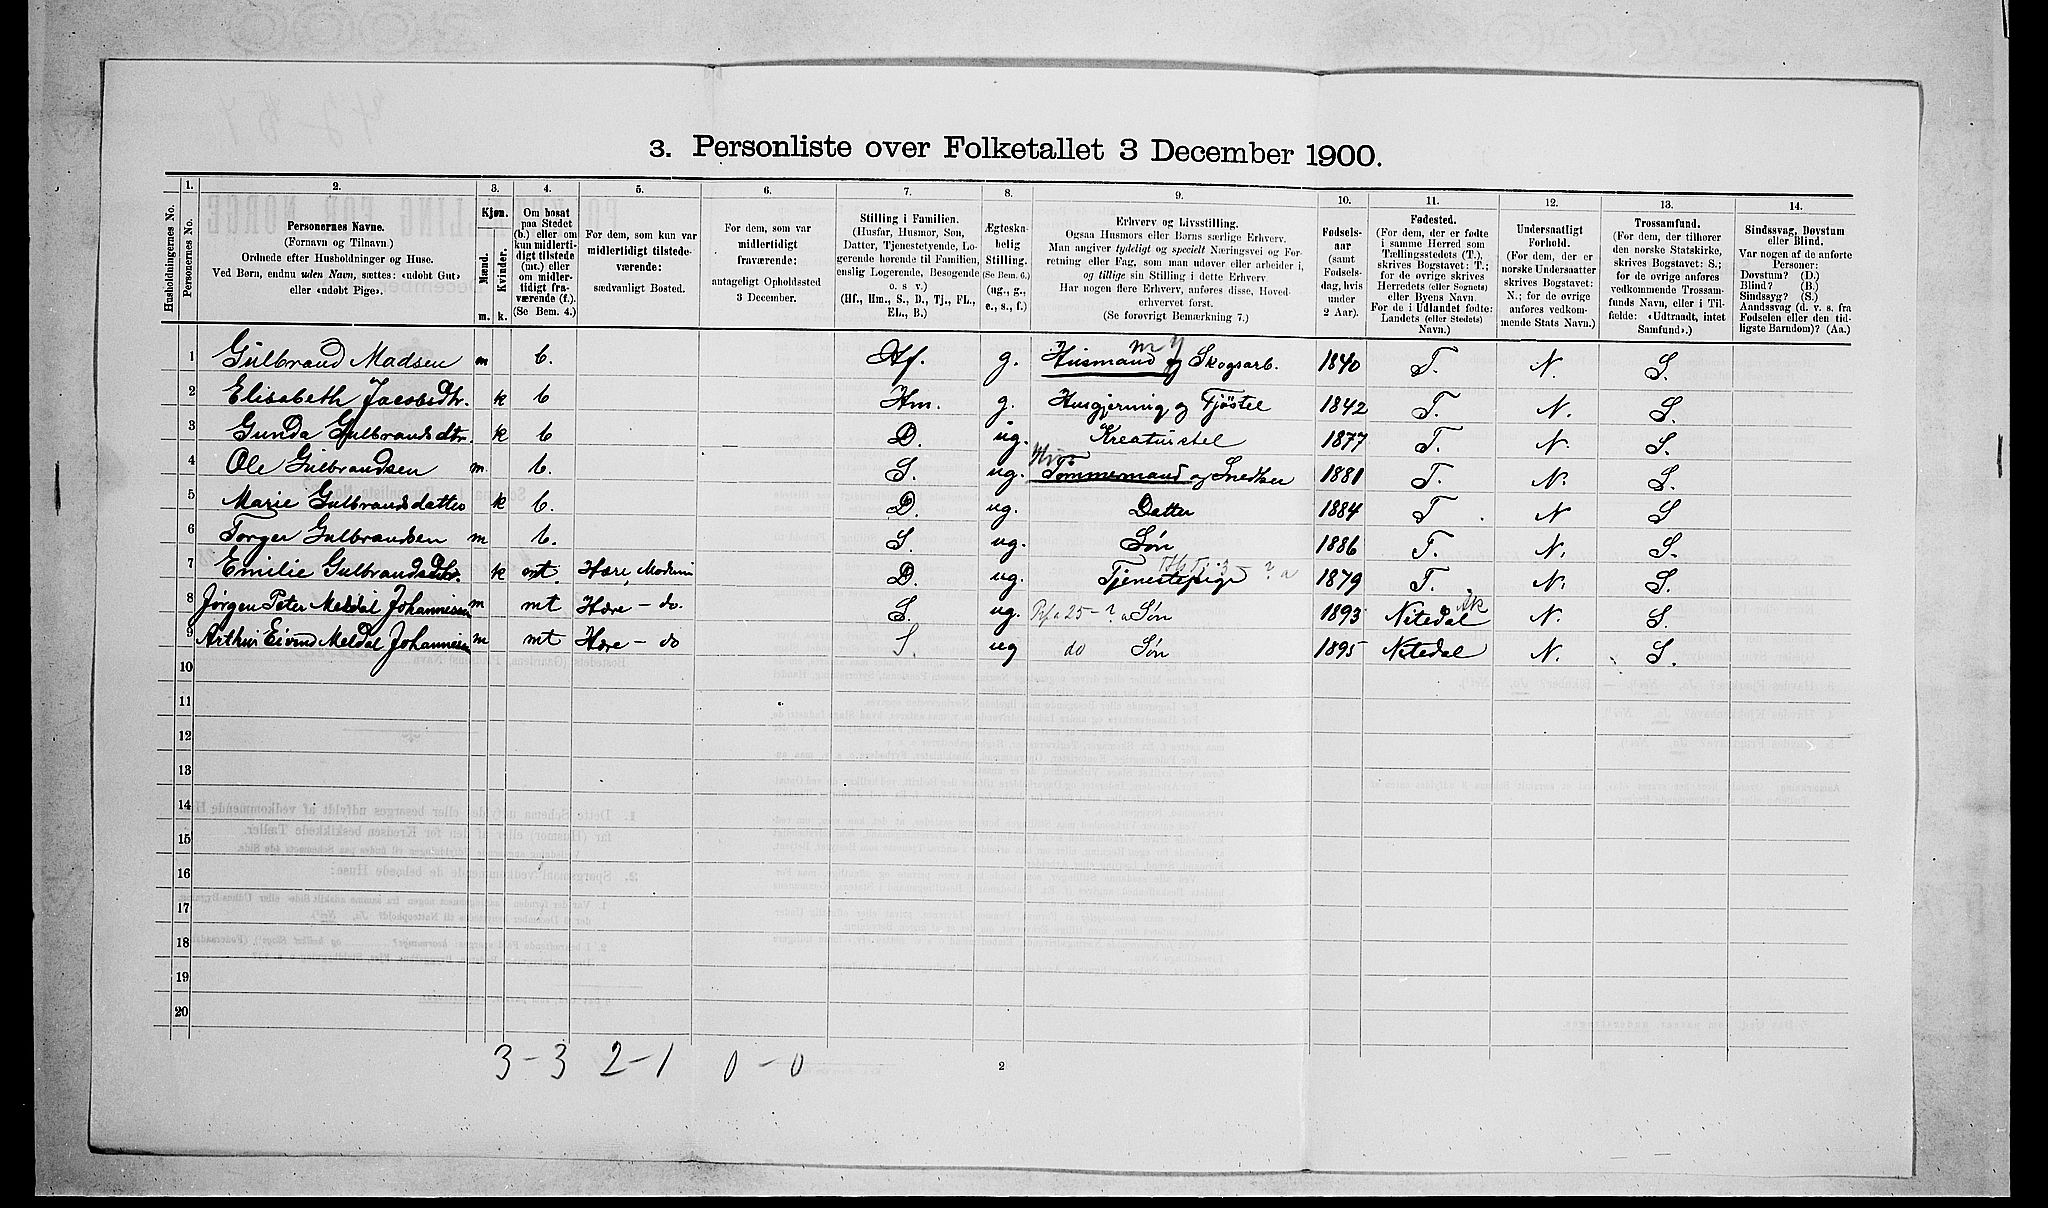 3. Personliste over Folketallet 3 December 1900.
1. 2. 3. 4. 5. 6. 7. 8. 9. 10. 11. 12. 13. 14.
Husholdningernes No.
Personernes No.
Personernes Navne.
(Fornavn og Tilnavn.)
Ordnede efter Husholdninger og Huse.
Ved Børn, endnu uden Navn, sættes: «udøbt Gut»
eller «udøbt Pige».
Kjøn.
Mænd. Kvinder.
m. k.
Om bosat
paa Stedet
(b.) eller om
kun midlerti-
digt tilstede
(mt.) eller
om midler-
tidigt fra-
værende (f.).
(Se Bem. 4.)
For dem, som kun var
midlertidigt tilstede-
værende:
sædvanligt Bosted.
For dem, som var
midlertidigt
fraværende:
antageligt Opholdssted
3 December.
Stilling i Familien.
(Husfar, Husmor, Søn,
Datter, Tjenestetyende, Lo-
gerende hørende til Familien,
enslig Logerende, Besøgende
o. s. v.)
(Hf., Hm., S., D., Tj., FL.,
EL., B.)
Ægteska-
belig
Stilling.
(Se Bem. 6.)
(ug., g.,
e., s., f.)
Erhverv og Livsstilling.
Ogsaa Husmors eller Børns særlige Erhverv.
Man angiver tydeligt og specielt Næringsvei og For-
retning eller Fag, som man udøver eller arbeider i,
og tillige sin Stilling i dette Erhverv.
Har nogen flere Erhverv, anføres disse, Hoved-
erhvervet først.
(Se forøvrigt Bemærkning 7.)
Fødsels-
aar
(samt
Fødsels-
dag, hvis
under
2 Aar).
Fødested.
(For dem, der er fødte
i samme Herred som
Tællingsstedets (T.),
skrives Bogstavet: T.;
for de øvrige skrives
Herredets (eller Sognets)
eller Byens Navn.
For de i Udlandet fødte:
Landets (eller Stedets)
Navn.)
Undersaatligt
Forhold.
(For dem, der er
norske Undersaatter
skrives Bogstavet:
N.; for de øvrige
anføres vedkom-
mende Stats Navn.)
Trossamfund.
(For dem, der tilhører
den norske Statskirke,
skrives Bogstavet: S.;
for de øvrige anføres
vedkommende Trossam-
funds Navn, eller i Til-
fælde: «Udtraadt, intet
Samfund».)
Sindssvag, Døvstum
eller Blind.
Var nogen af de anførte
Personer:
Døvstum? (D.)
Blind? (B.)
Sindssyg? (S.)
Aandssvag (d. v. s. fra
Fødselen eller den tid-
ligste Barndom)? (Aa.)
1 Gulbrand Madsen m b. Hf. g. Husmand og Skogsarb. 1840 T. N. S.
2 Elisabeth Jacobsdtr. k b Hm. g. Husgjerning og Fjøstel 1842 T. N. S.
3 Gunda Gulbrandsdtr. k b D. ug. Kreaturstel 1877 T. N. S.
4 Ole Gulbrandsen m. b. S. ug. Tømmermand og Snedker 1881 T. N. S.
5 Marie Gulbrandsdatter k b. D. ug. Datter 1884 T N S
6 Torger Gulbrandsen m b. S. ug. Søn 1886 T. N. S.
7 Emilie Gulbrandsdtr. k mt. Hære, Modum D. ug. Tjenestepige 1879 T. N. S.
8 Jørgen Peter Meldal Johannisen m mt Hære - do. S. ug. Søn 1893 Nitedal Ak N. S.
9 Arthur Eivind Meldal Johannisen m mt Hære - do S. ug do Søn 1895 Nitedal N. S.
10
11
12
13
14
15
16
17
18
19
20
3 - 3 2 - 1 0 - 0
2